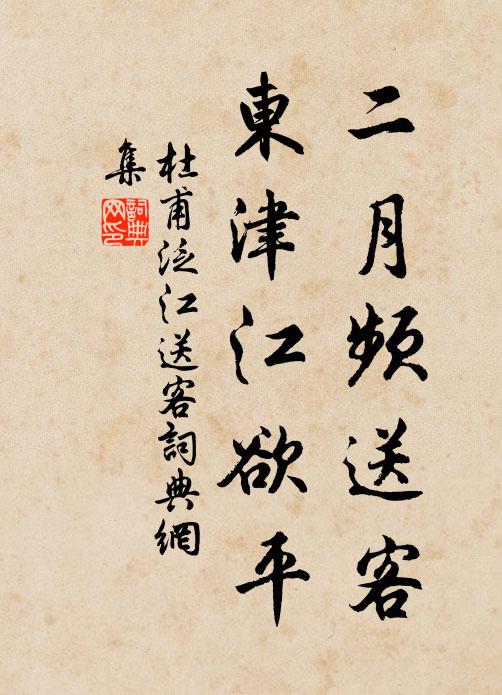 二月頻送客
東津江欲平
杜甫泛江送客詞典網
集
詞典
网印